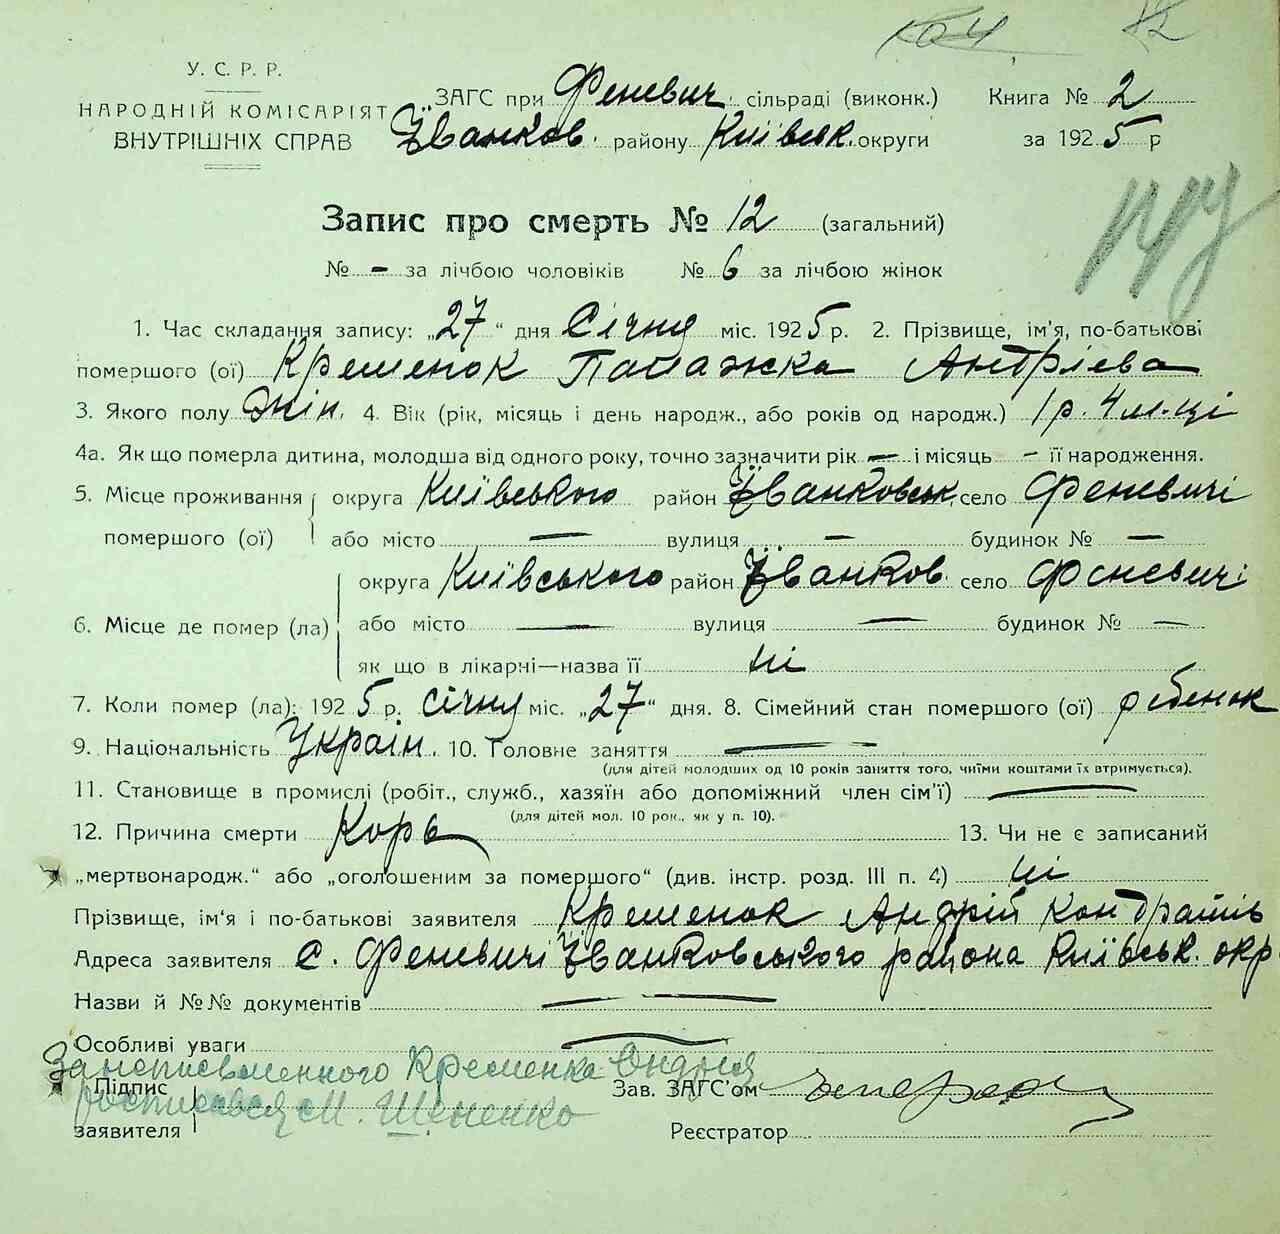 У. С. Р. Р.
НАРОДНІЙ КОМІСАРІЯТ
ВНУТРІШНІХ СПРАВ
ЗАГС при Феневич. сільраді (виконк.)
Іванков. району Київськ. округи
Книга № 2
за 1925 р
Запис про смерть № 12 (загальний)
№ - за лічбою чоловіків № 6 за лічбою жінок
1. Час складання запису: „27“ дня Січня міс. 1925 р. 2. Прізвище, ім'я, по-батькові
помершого (ої) Кременок Палажка Андрієва
3. Якого полу Жін. 4. Вік (рік, місяць і день народж., або років од народж.) 1 р. 4 м-ці
4а. Як що померла дитина, молодша від одного року, точно зазначити рік — і місяць - її народження.
5. Місце проживання округа Київського район Іванковськ. село Феневичі
помершого (ої) або місто — вулиця — будинок № —
округа Київського район Іванков. село Феневичі
6. Місце де помер (ла) або місто — вулиця — будинок № —
як що в лікарні—назва її ні
7. Коли помер (ла): 1925 р. січня міс. „27“ дня. 8. Сімейний стан помершого (ої) ребенок
9. Національність Україн. 10. Головне заняття —
(для дітей молодших од 10 років заняття того, чиїми коштами їх втримується).
11. Становище в промислі (робіт., служб., хазяїн або допоміжний член сім'ї) —
(для дітей мол. 10 рок., як у п. 10).
12. Причина смерти Корь 13. Чи не є записаний
„мертвонародж.“ або „оголошеним за помершого“ (див. інстр. розд. III п. 4) ні
Прізвище, ім'я і по-батькові заявителя Кременок Андрій Кондратів
Адреса заявителя с. Феневичі Іванковського района Київськ. окр
Назви й №№ документів —
Особливі уваги —
За неписьменного Кременка Андрія
Підпис росписався М. Щененко
заявителя
Зав. ЗАГС'ом
Реєстратор